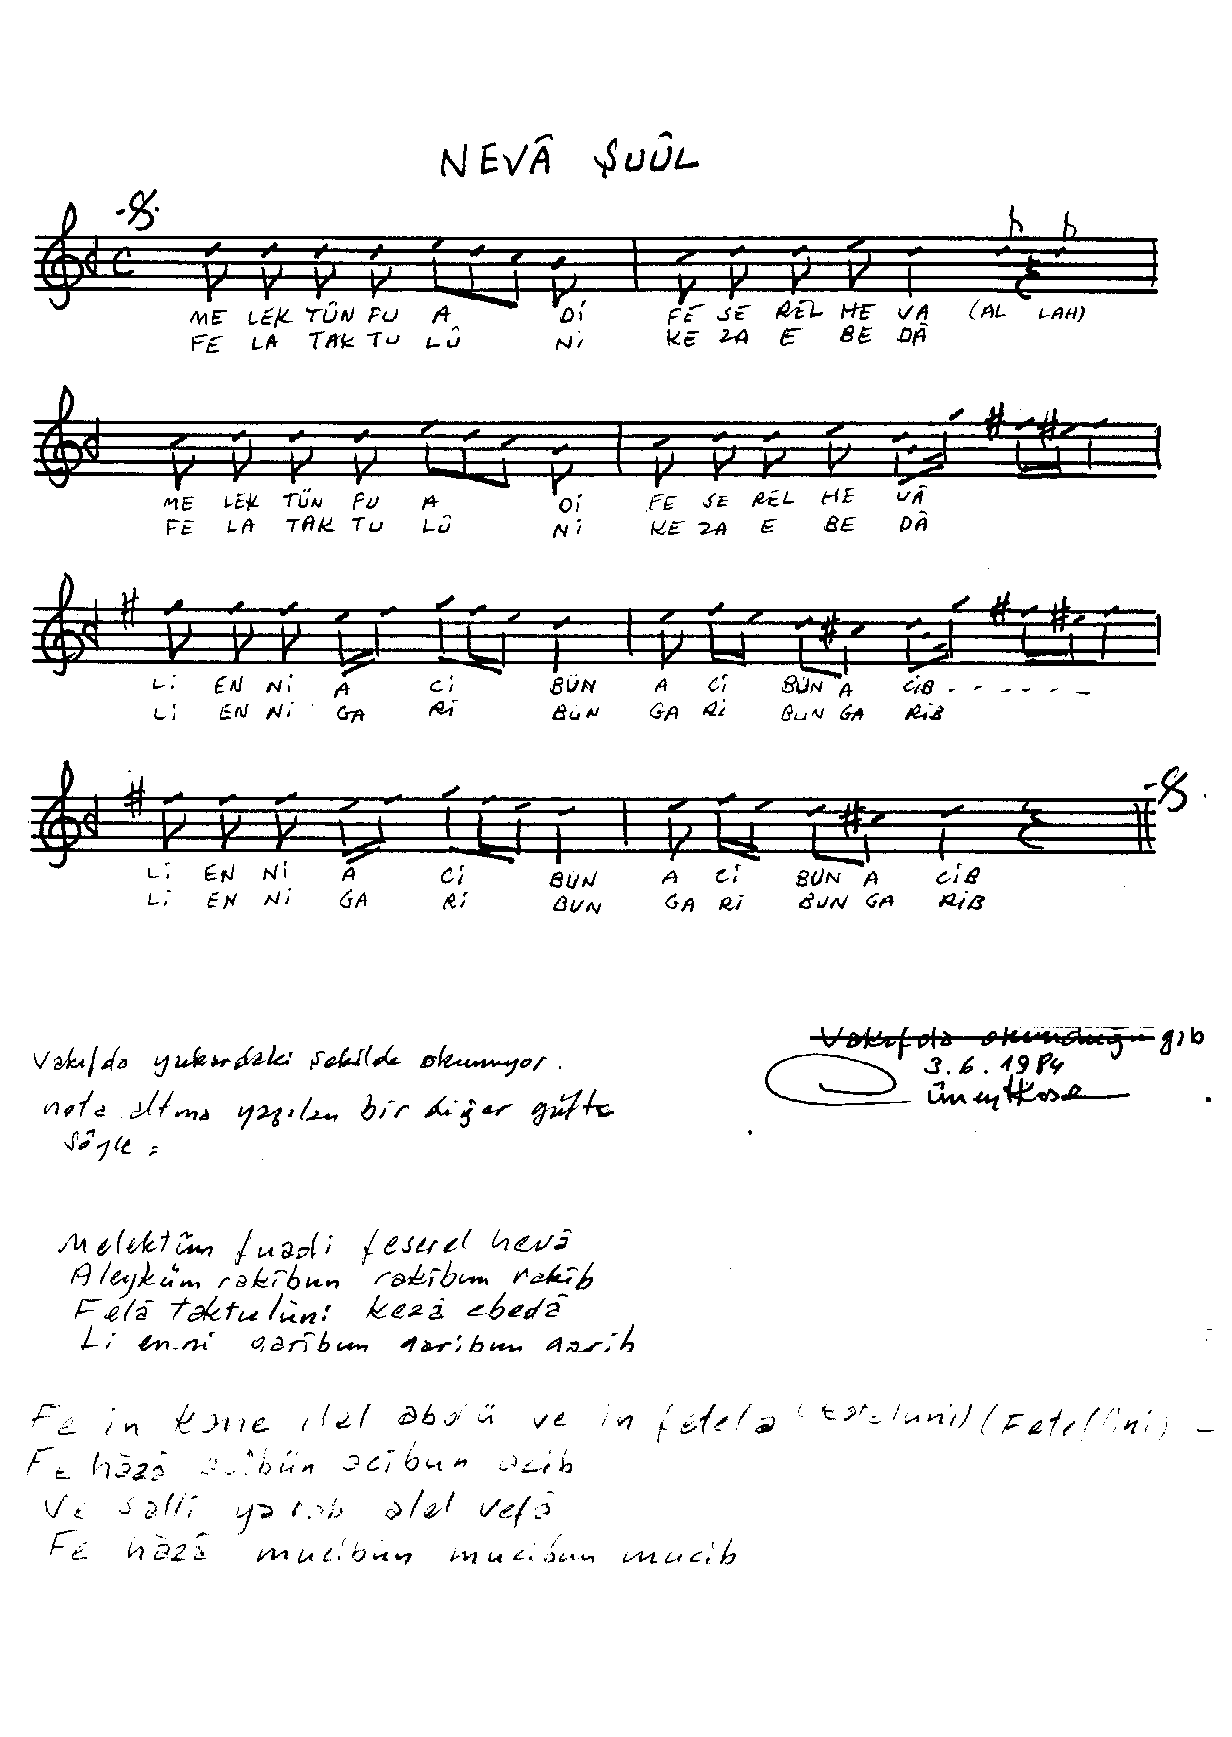 NEVÂ ŞUÛL
ME LEK TÜN FU A Dİ FE SE REL HE VA (AL LAH)
FE LA TAK TU LÛ Nİ KE ZA E BE DÂ
ME LEK TÜN FU A Dİ FE SE REL HE VÂ
FE LA TAK TU LÛ Nİ KE ZA E BE DÂ
Lİ EN Nİ A Cİ BÜN A Cİ BÜN A CİB - - - - - -
Lİ EN Nİ GA Rİ BUN GA Rİ BUN GA RİB
Lİ EN Nİ A Cİ BUN A Cİ BUN A CİB
Lİ EN Nİ GA Rİ BUN GA Rİ BUN GA RİB
Vakıfda okunduğu gib
3.6.1984
Vakıfda yukardaki şekilde okunuyor.
nota altına yazılan bir diğer güfte
şöyle :
Melektüm fuadi feserel hevâ
Aleyküm rakîbun rakîbun rakîb
Felâ taktulûni kezâ ebedâ
Li enni garîbun garibun garib
Fe in kane del abdü ve in fetela (Fetellini) -
Fe hâzâ acîbün acibun acib
Ve salli yarab alel vefâ
Fe hâzâ mucibun mucibun mucib